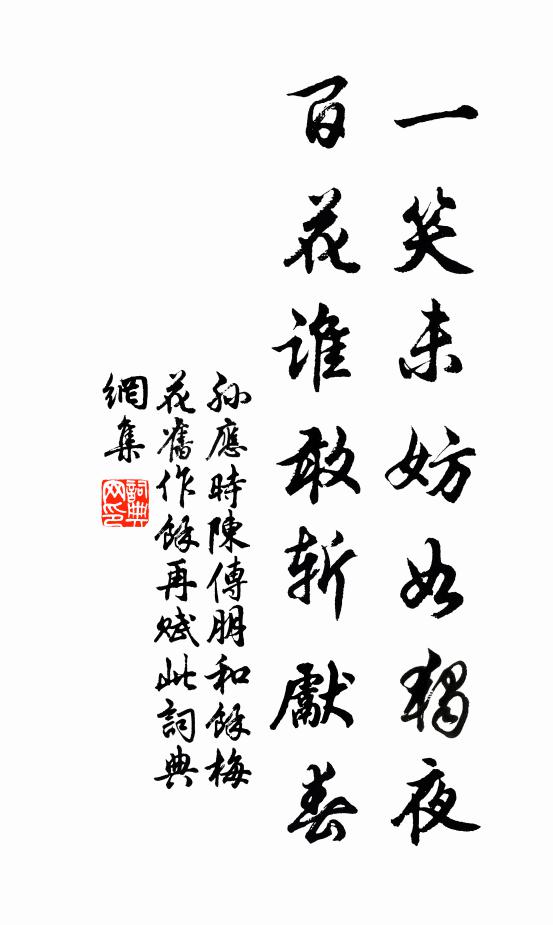 一笑未妨如獨夜
百花誰敢斬獻春
孫應時陳傳朋和餘梅
花舊作餘再賦此詞典
網集
詞典
网印